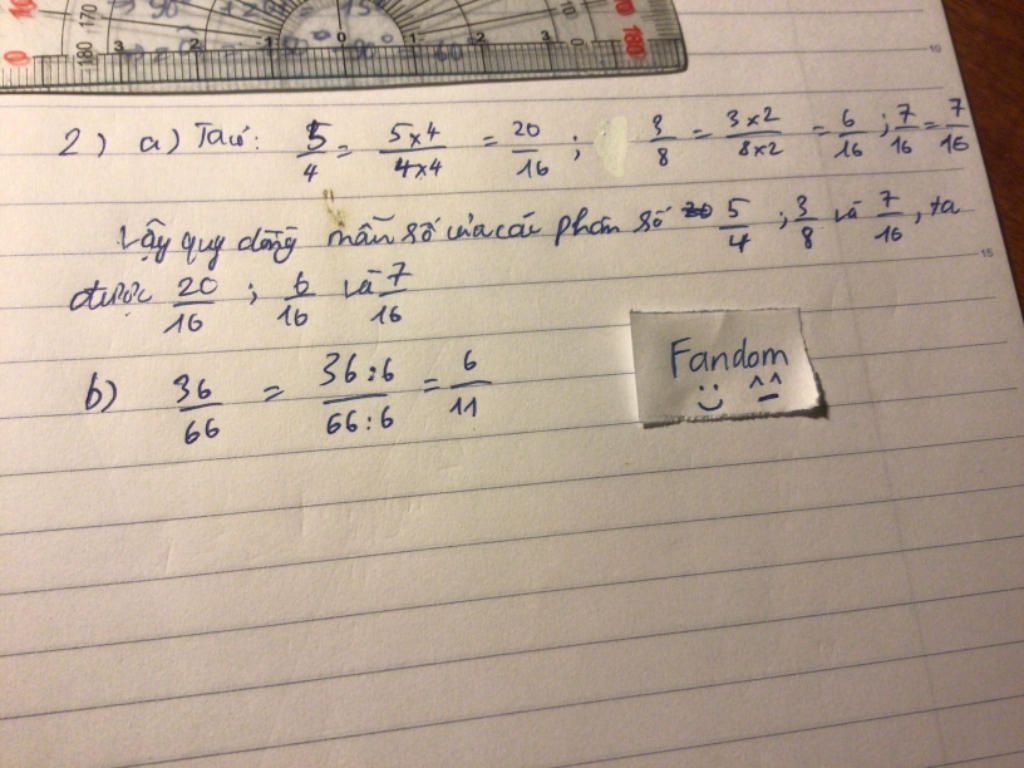 170
180 3 2 1 0 1 2 3 0 180
10
2) a) Ta có: 5/4 = 5x4/4x4 = 20/16 ; 3/8 = 3x2/8x2 = 6/16 ; 7/16 = 7/16
Vậy quy đồng mẫu số của các phân số 5/4 ; 3/8 và 7/16 , ta
15
được 20/16 ; 6/16 và 7/16
b) 36/66 = 36:6/66:6 = 6/11
Fandom